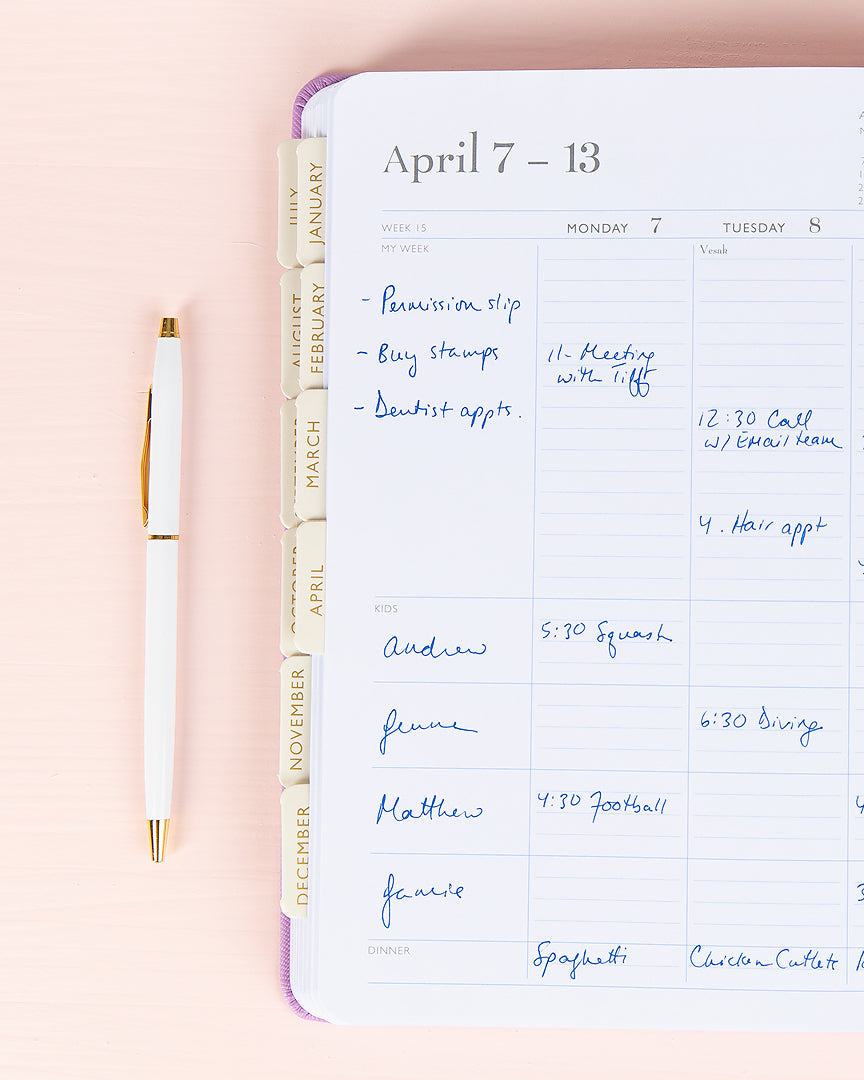 April 7 – 13
WEEK 15
MONDAY 7
TUESDAY 8
MY WEEK
Vesak
- Permission slip
- Buy stamps
11- Meeting
with Tiff
- Dentist appts.
12:30 Call
w/ Email team
4. Hair appt
KIDS
Andrew
5:30 Squash
Jenna
6:30 Diving
Matthew
4:30 Football
Jamie
DINNER
Spaghetti
Chicken Cutlets
JULY
JANUARY
AUGUST
FEBRUARY
MARCH
OCTOBER
APRIL
NOVEMBER
DECEMBER